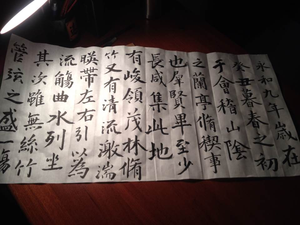 永和九年歲在
癸丑暮春之初
于會稽山陰
之蘭亭脩禊事
也羣賢畢至少
長咸集此地
有峻嶺茂林脩
竹又有清流激湍
暎帶左右引以為
流觴曲水列坐
其次雖無絲竹
管弦之盛一觴